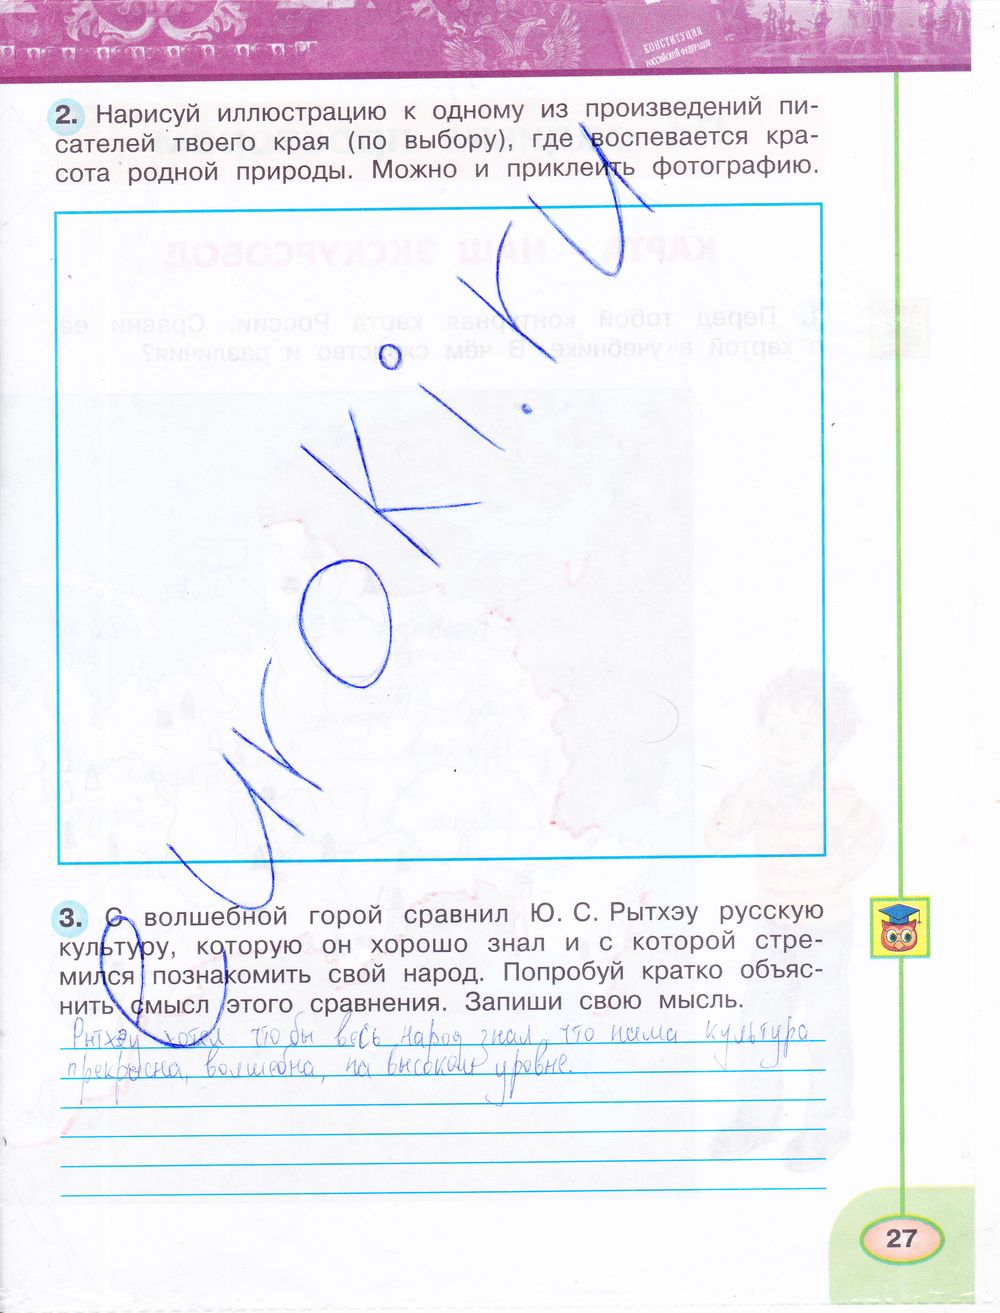 КОНСТИТУЦИЯ
РОССИЙСКОЙ ФЕДЕРАЦИИ
2. Нарисуй иллюстрацию к одному из произведений пи-
сателей твоего края (по выбору), где воспевается кра-
сота родной природы. Можно и приклеить фотографию.
КАРТА – НАШ ЭКСКУРСОВОД
1. Перед тобой контурная карта России. Сравни её
с картой в учебнике. В чём сходство и различия?
euroki.ru
3. С волшебной горой сравнил Ю. С. Рытхэу русскую
культуру, которую он хорошо знал и с которой стре-
мился познакомить свой народ. Попробуй кратко объяс-
нить смысл этого сравнения. Запиши свою мысль.
Рытхэу хотел что бы весь народ знал, что наша культура
прекрасна, волшебна, на высоком уровне.
27